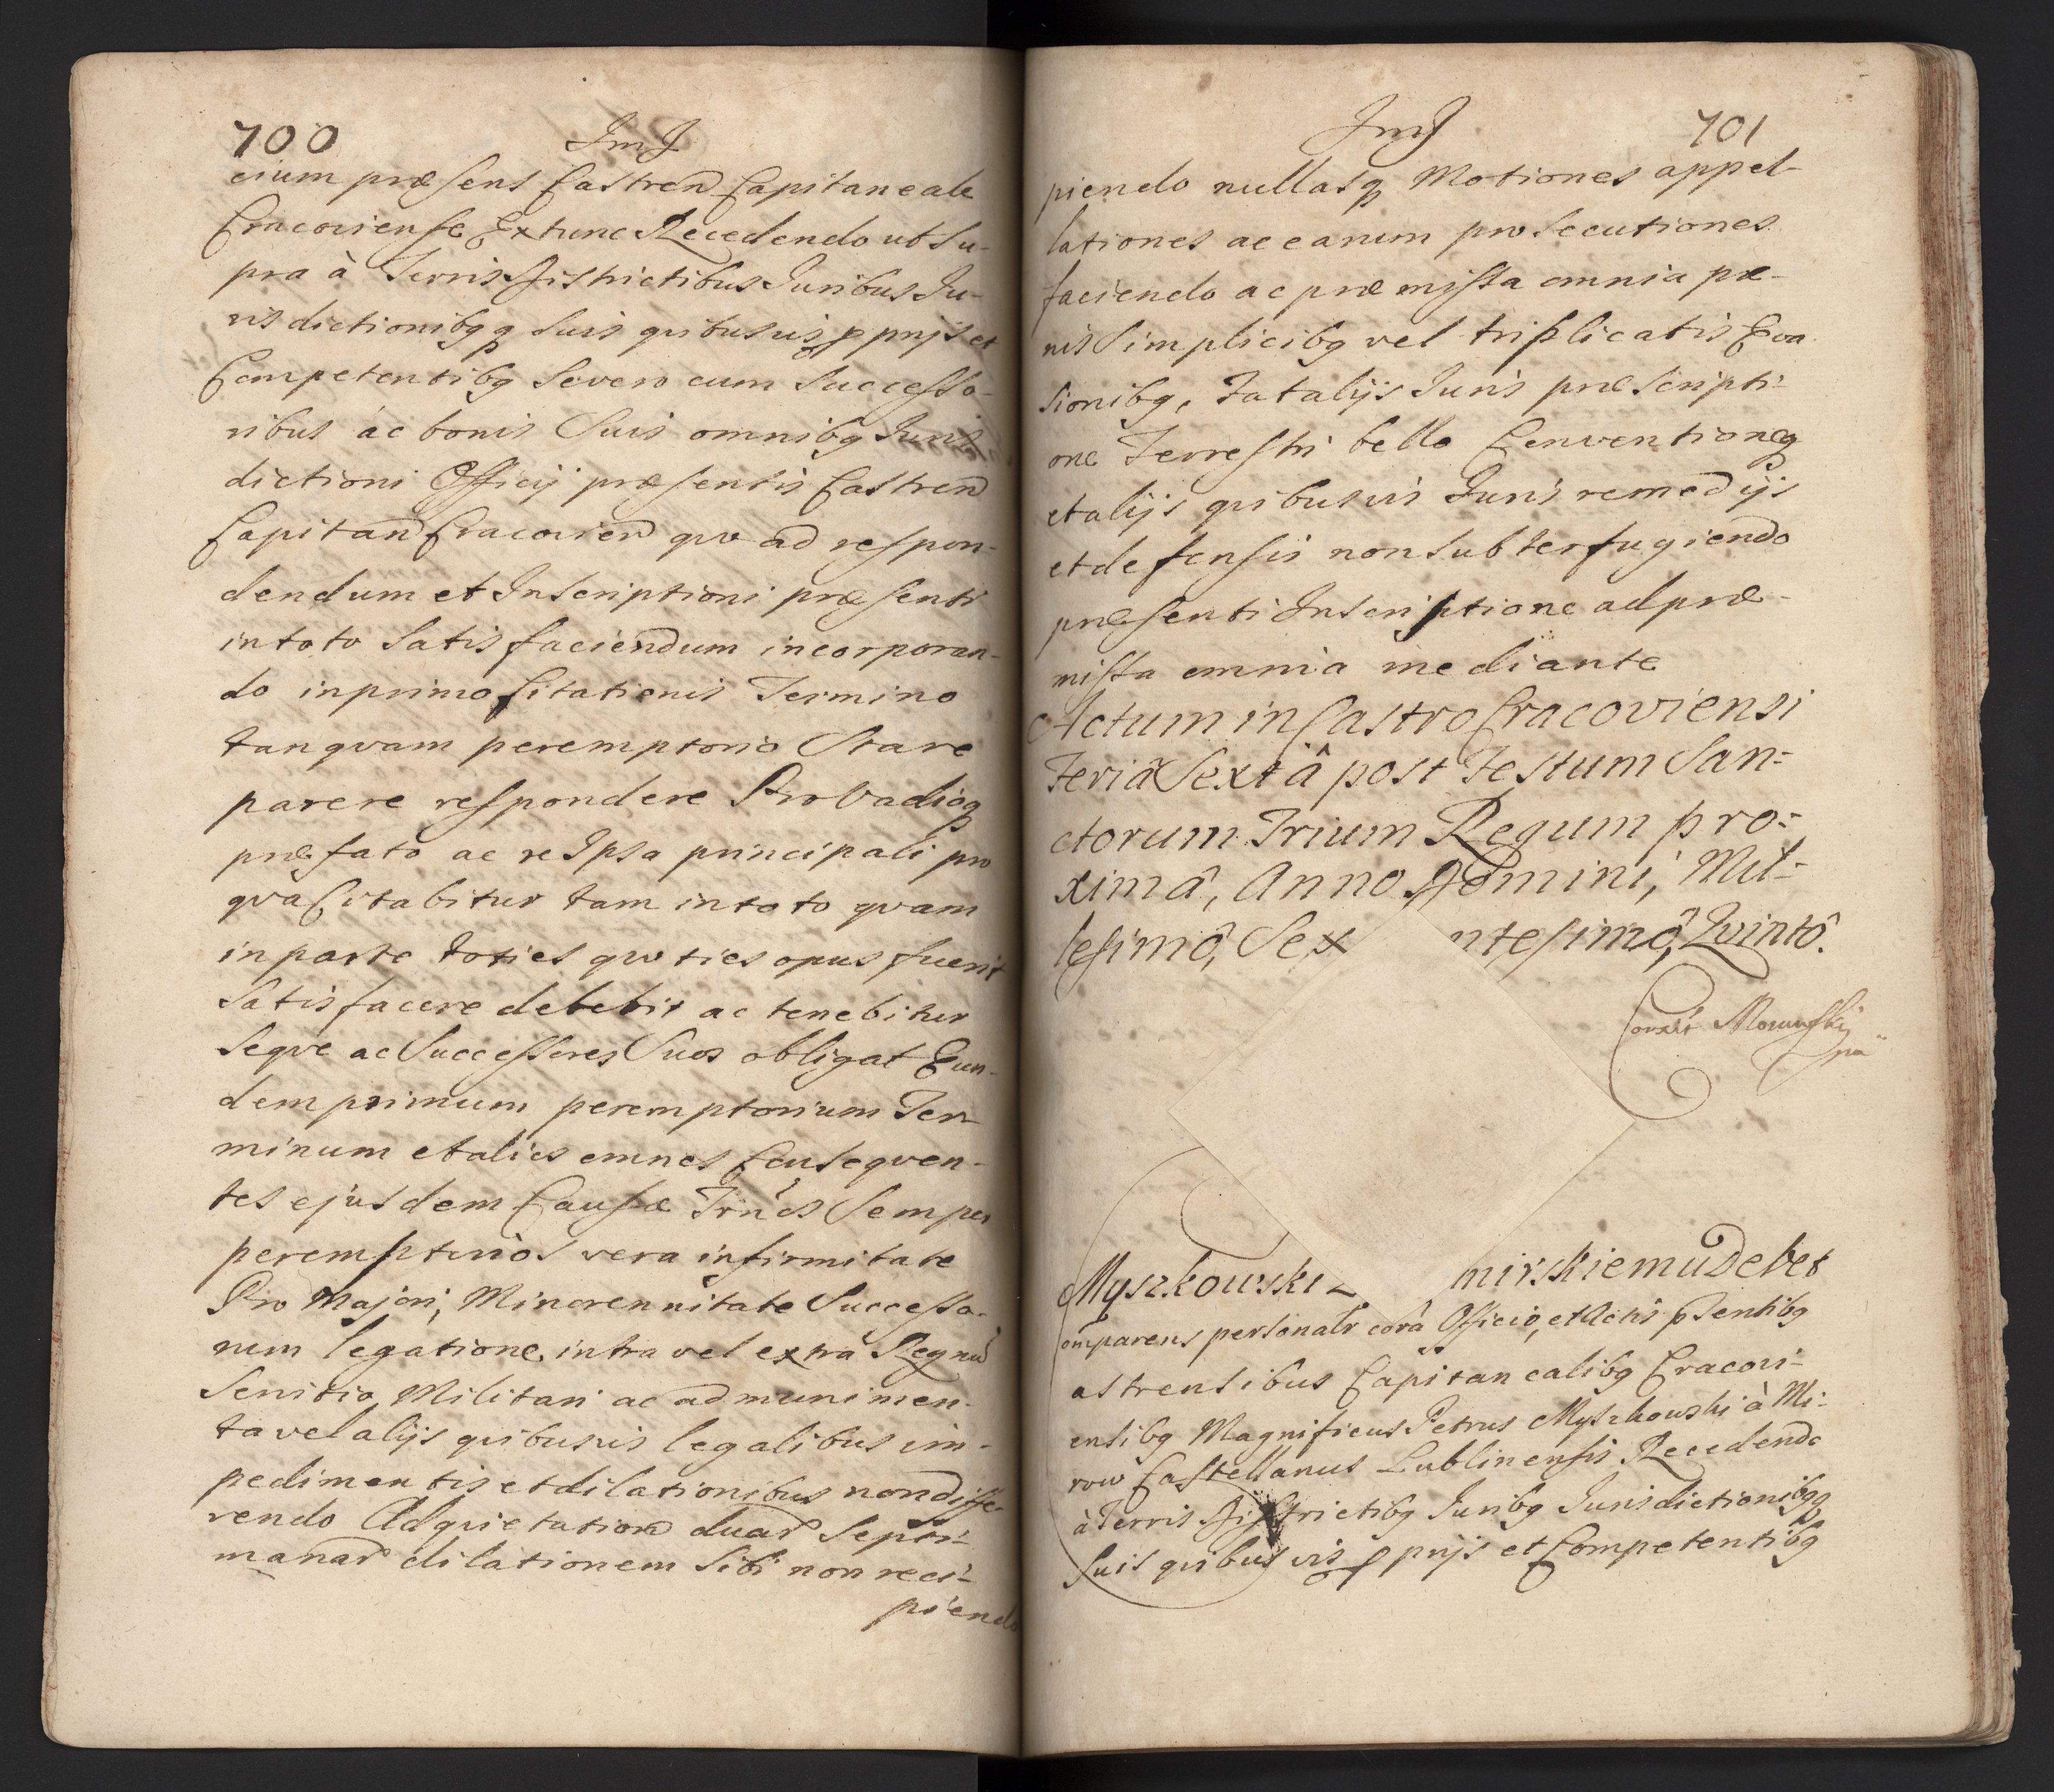 700
JmJ
cium præsens Castren Capitaneale
Cracoviense Extunc Recedendo ut su-
pra à Terris Districtibus Juribus Ju-
risdictionibqq suis quibusvis pprijs et
Competentibq Severo cum Successo-
ribus ac bonis Suis omnibq Juris
dictioni Officij præsentis Castren
Capitan Cracovien quo ad respon-
dendum et Inscriptioni præsenti
intoto Satisfaciendum incorporan-
do inprimo Citationis Termino
tanquam peremptorio Stare
parere respondere Pro Vadioq
præfato ac re Ipsa principali pro
qva Citabitur tam intoto qvam
inparte toties quoties opus fuerit
Satisfacere debebit ac tenebitur
Seqve ac Successores Suos obligat Eun-
dem primum peremptorium Ter-
minum et alios omnes Conseqven-
tes ejusdem Causæ Trños Semper
peremptorios vera infirmitate
Pro Majori, Minorennitate Successo-
rum legatione intra vel extra Regnũ
Servitio Militari ac ad munimen-
ta vel alijs quibusvis legalibus im-
pedimentis et dilationibus non diffe-
rendo Ad quietation duar Septi-
manar dilationem Sibi non reci-
piendo
JmJ
701
piendo nullasq Motiones appel-
lationes ac earum prosecutiones
faciendo ac præmissa omnia pæ-
nis Simplicibq vel triplicatis Eva
sionibq, Fatalijs Juris præscripti-
one Terrestri bello Conventioneq
et alijs quibusvis Juris remedijs
et defensis non Subterfugiendo
præsenti Inscriptione ad præ-
missa omnia mediante
Actum in Castro Cracoviensi
Feriâ Sextâ post Festum San-
ctorum Trium Regum pro-
ximâ, Anno Domini, Mil-
lesimô, Sex ntesimô, Qvintô.
Myszkowski mirskiemu Debet
omparens personalr corã Officio, et Actis psentibq
astrensibus Capitanealibq Cracovi-
ensibq Magnificus Petrus Myszkowski à Mi-
row Castellanus Lublinensis Recedendo
à Terris Districtibq Juribq Jurisdictionibqq
suis quibusvis pprijs et Competentibq